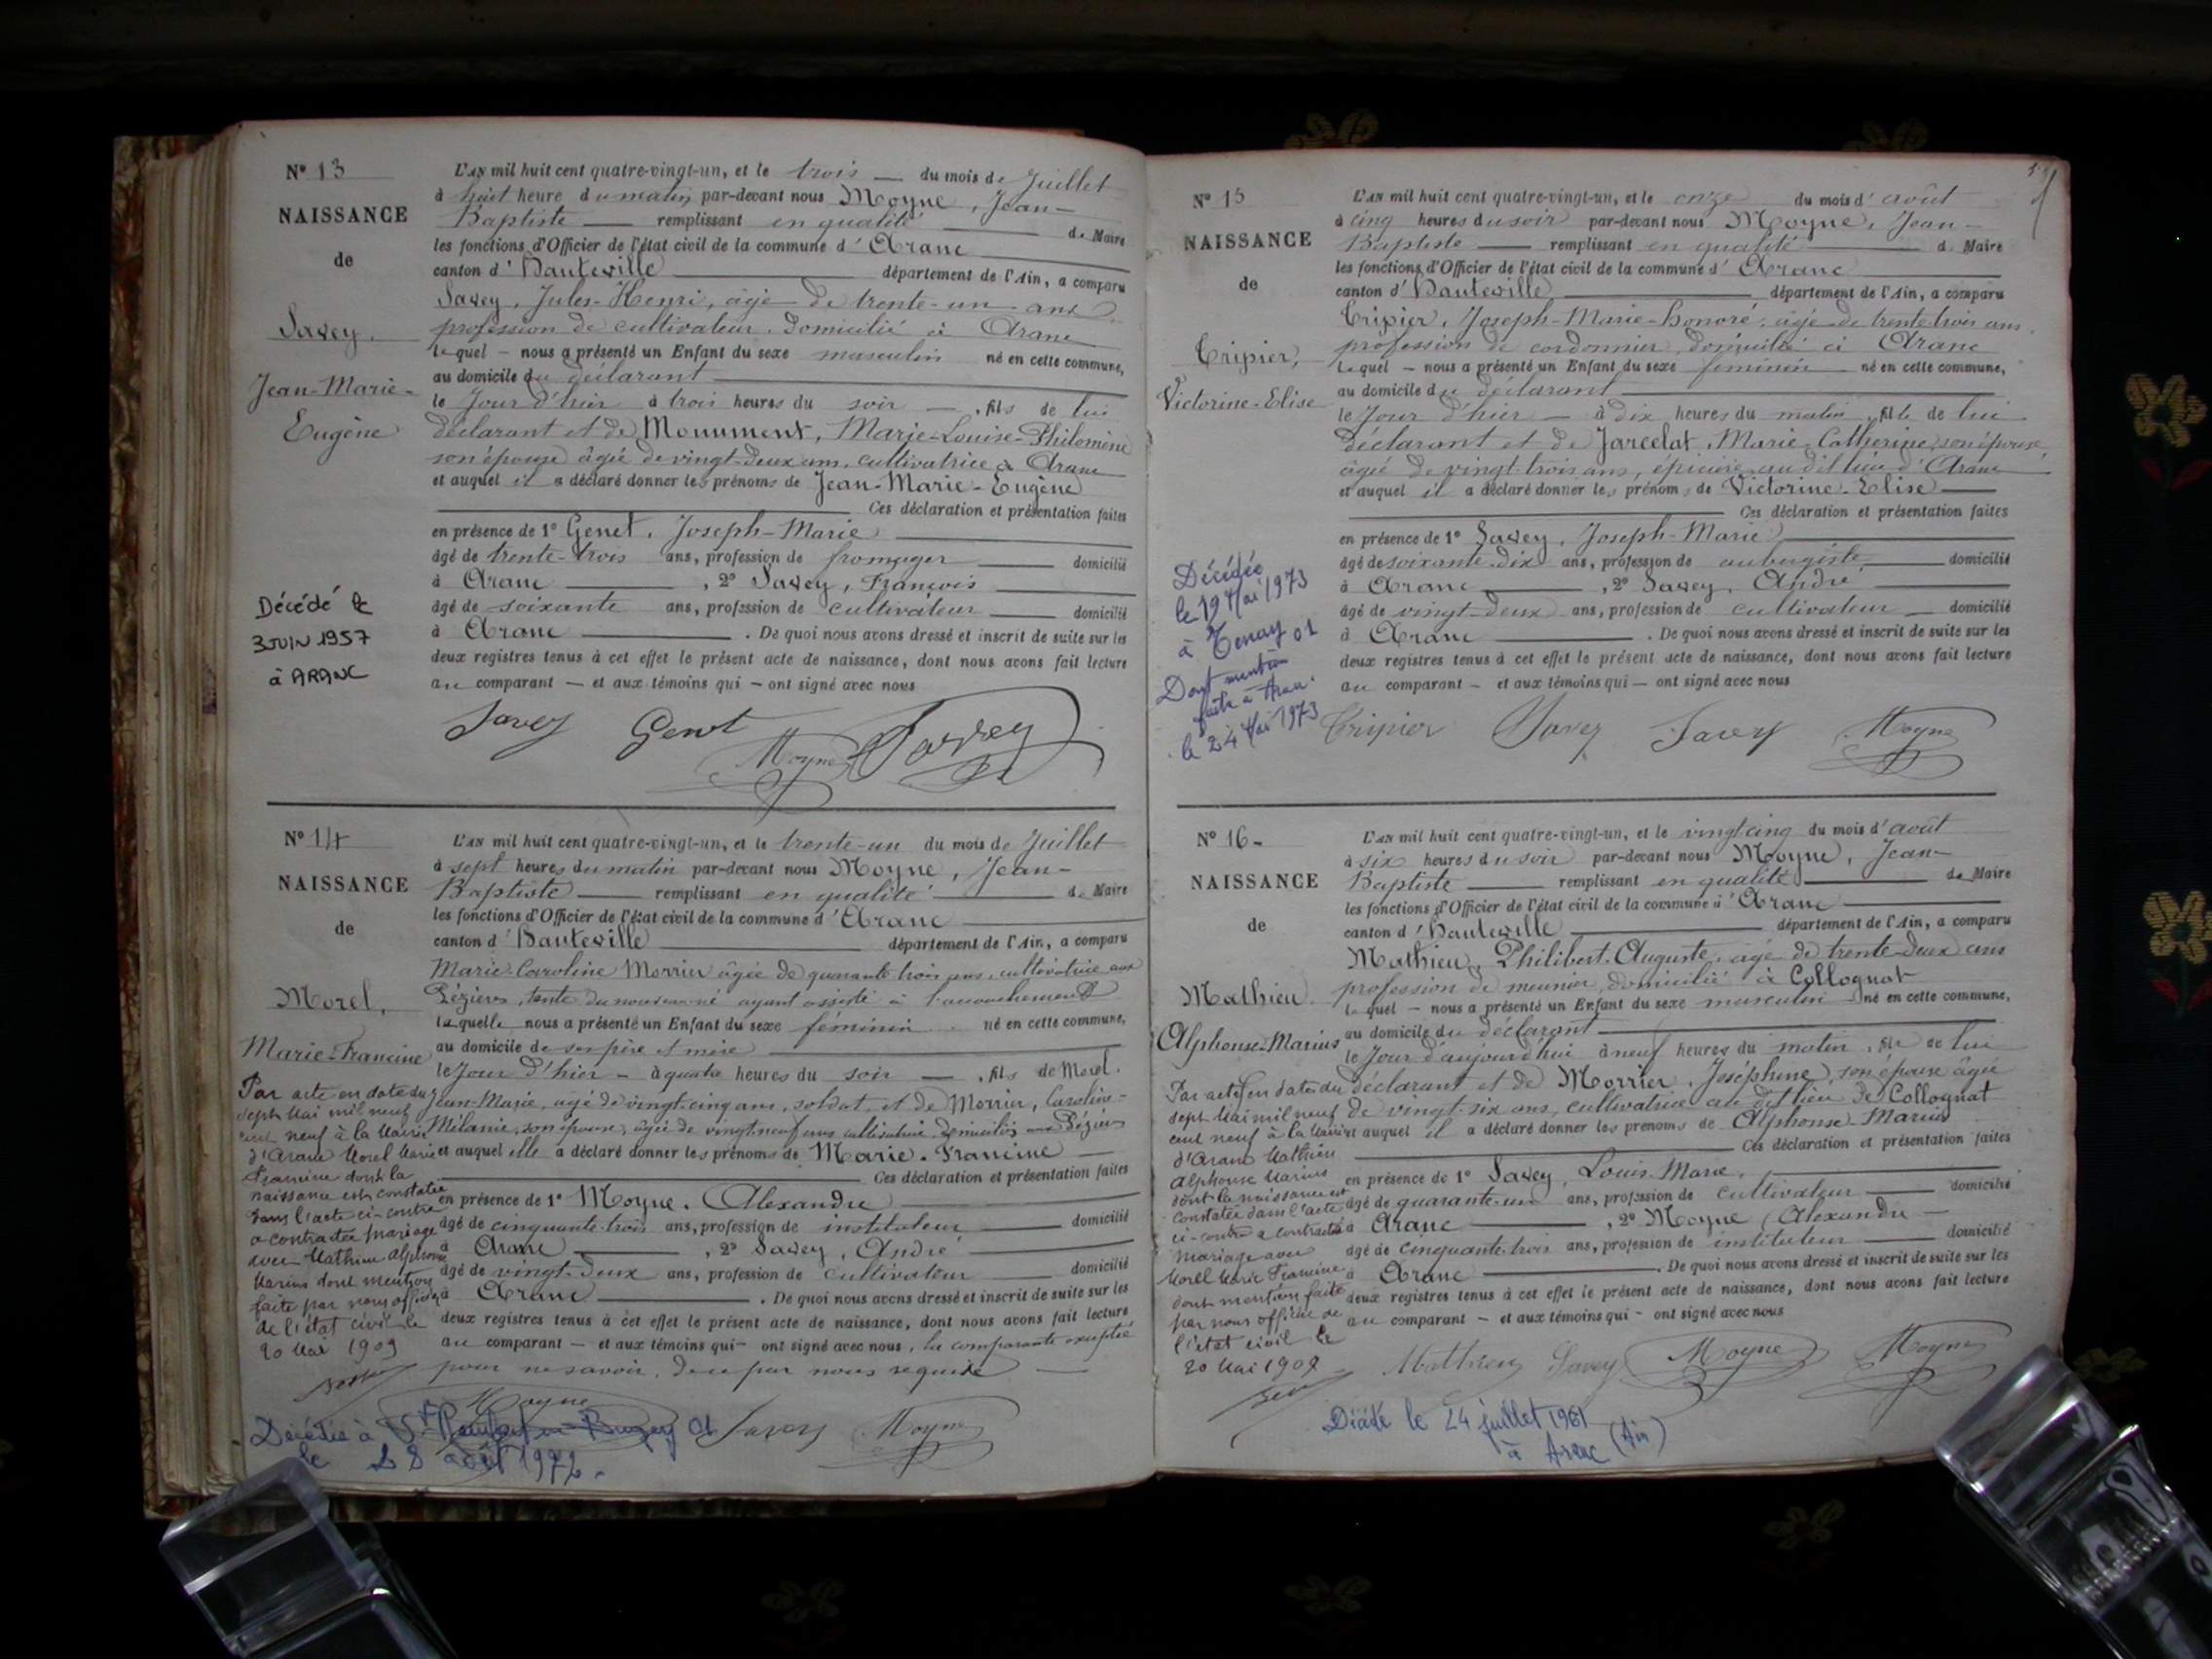 N° 13
NAISSANCE
de
Savey,
Jean-Marie-
Eugène
Décédé le
3 JUIN 1957
à ARANC
L'AN mil huit cent quatre-vingt-un, et le trois — du mois de Juillet
à huit heure du matin par-devant nous Moyne, Jean-
Baptiste — remplissant en qualité — de Maire
les fonctions d'Officier de l'état civil de la commune d'Aranc
canton d'Hauteville — département de l'Ain, a comparu
Savey, Jules-Henri, âgé de trente-un ans
profession de cultivateur, domicilié à Aranc
lequel — nous a présenté un Enfant du sexe masculin né en cette commune,
au domicile du déclarant —
le Jour d'hier à trois heures du soir — , fils de lui
déclarant et de Monument, Marie-Louise-Philomène
son épouse âgée de vingt-deux ans, cultivatrice à Aranc
et auquel il a déclaré donner les prénoms de Jean-Marie-Eugène
— Ces déclaration et présentation faites
en présence de 1° Genet, Joseph-Marie —
âgé de trente-trois ans, profession de fromager — domicilié
à Aranc — , 2° Savey, François —
âgé de soixante ans, profession de cultivateur — domicilié
à Aranc — . De quoi nous avons dressé et inscrit de suite sur les
deux registres tenus à cet effet le présent acte de naissance, dont nous avons fait lecture
au comparant — et aux témoins qui — ont signé avec nous
Savey Genet
Moyne Savey
N° 14
NAISSANCE
de
Morel,
Marie-Francine
Par acte en date du
sept Mai mil neuf
cent neuf à la Mairie
d'Aranc Morel Marie
Francine dont la
naissance est constatée
dans l'acte ci-contre
a contracté mariage
avec Mathieu Alphonse
Marius dont mention
faite par nous officier
de l'état civil le
20 Mai 1909
L'AN mil huit cent quatre-vingt-un, et le trente-un du mois de Juillet
à sept heures du matin par-devant nous Moyne, Jean-
Baptiste — remplissant en qualité — de Maire
les fonctions d'Officier de l'état civil de la commune d'Aranc —
canton d'Hauteville — département de l'Ain, a comparu
Marie-Caroline Morrier âgée de quarante trois ans, cultivatrice aux
Pézières, tante du nouveau né ayant assisté à l'accouchement
laquelle nous a présenté un Enfant du sexe féminin né en cette commune,
au domicile de ses père et mère —
le Jour d'hier — à quatre heures du soir — , fils de Morel,
Jean-Marie, âgé de vingt-cinq ans, soldat, et de Morrier, Caroline-
Mélanie, son épouse, âgée de vingt-neuf ans cultivatrice, domiciliés aux Pézières
et auquel elle a déclaré donner les prénoms de Marie-Francine —
— Ces déclaration et présentation faites
en présence de 1° Moyne, Alexandre —
âgé de cinquante-trois ans, profession de instituteur — domicilié
à Aranc — , 2° Savey, André —
âgé de vingt-deux ans, profession de cultivateur — domicilié
à Aranc — . De quoi nous avons dressé et inscrit de suite sur les
deux registres tenus à cet effet le présent acte de naissance, dont nous avons fait lecture
au comparant — et aux témoins qui — ont signé avec nous, la comparante exceptée
pour ne savoir, de ce par nous requise —
Moyne Savey Moyne
Décédée à St Rambert en Bugey 01
le 28 août 1972.
N° 15
NAISSANCE
de
Tripier,
Victorine-Elise
Décédée
le 19 Mai 1973
à Tenay 01
Dont mention
faite à Aranc
le 24 Mai 1973
L'AN mil huit cent quatre-vingt-un, et le onze du mois d'août
à cinq heures du soir par-devant nous Moyne, Jean-
Baptiste — remplissant en qualité — de Maire
les fonctions d'Officier de l'état civil de la commune d'Aranc
canton d'Hauteville — département de l'Ain, a comparu
Tripier, Joseph-Marie-Honoré, âgé de trente trois ans,
profession de cordonnier, domicilié à Aranc
lequel — nous a présenté un Enfant du sexe féminin né en cette commune,
au domicile du déclarant —
le Jour d'hier — à dix heures du matin, fille de lui
déclarant et de Jarcelat, Marie-Catherine, son épouse
âgée de vingt-trois ans, épicière au dit lieu d'Aranc
et auquel il a déclaré donner les prénoms de Victorine-Elise —
— Ces déclaration et présentation faites
en présence de 1° Savey, Joseph-Marie —
âgé de soixante-dix ans, profession de aubergiste — domicilié
à Aranc — , 2° Savey, André —
âgé de vingt-deux ans, profession de cultivateur — domicilié
à Aranc — . De quoi nous avons dressé et inscrit de suite sur les
deux registres tenus à cet effet le présent acte de naissance, dont nous avons fait lecture
au comparant — et aux témoins qui — ont signé avec nous
Tripier Savey Savey Moyne
N° 16-
NAISSANCE
de
Mathieu
Alphonse-Marius
Par acte en date du
sept Mai mil neuf
cent neuf à la Mairie
d'Aranc Mathieu
Alphonse Marius
dont la naissance est
constatée dans l'acte
ci-contre a contracté
mariage avec
Morel Marie Francine
dont mention faite
par nous officier de
l'état civil le
20 Mai 1909
L'AN mil huit cent quatre-vingt-un, et le vingt cinq du mois d'août
à six heures du soir par-devant nous Moyne, Jean-
Baptiste — remplissant en qualité — de Maire
les fonctions d'Officier de l'état civil de la commune d'Aranc —
canton d'Hauteville — département de l'Ain, a comparu
Mathieu, Philibert-Auguste, âgé de trente-deux ans
profession de meunier, domicilié à Collognat
lequel — nous a présenté un Enfant du sexe masculin né en cette commune,
au domicile du déclarant —
le Jour d'aujourd'hui à neuf heures du matin, fils de lui
déclarant et de Morrier, Joséphine, son épouse âgée
de vingt-six ans, cultivatrice au dit lieu de Collognat
et auquel il a déclaré donner les prénoms de Alphonse-Marius
— Ces déclaration et présentation faites
en présence de 1° Savey, Louis-Marie, —
âgé de quarante-un ans, profession de cultivateur — domicilié
à Aranc — , 2° Moyne, Alexandre —
âgé de cinquante-trois ans, profession de instituteur — domicilié
à Aranc — . De quoi nous avons dressé et inscrit de suite sur les
deux registres tenus à cet effet le présent acte de naissance, dont nous avons fait lecture
au comparant — et aux témoins qui — ont signé avec nous
Mathieu Savey Moyne Moyne
Décédé le 24 juillet 1961
à Aranc (Ain)